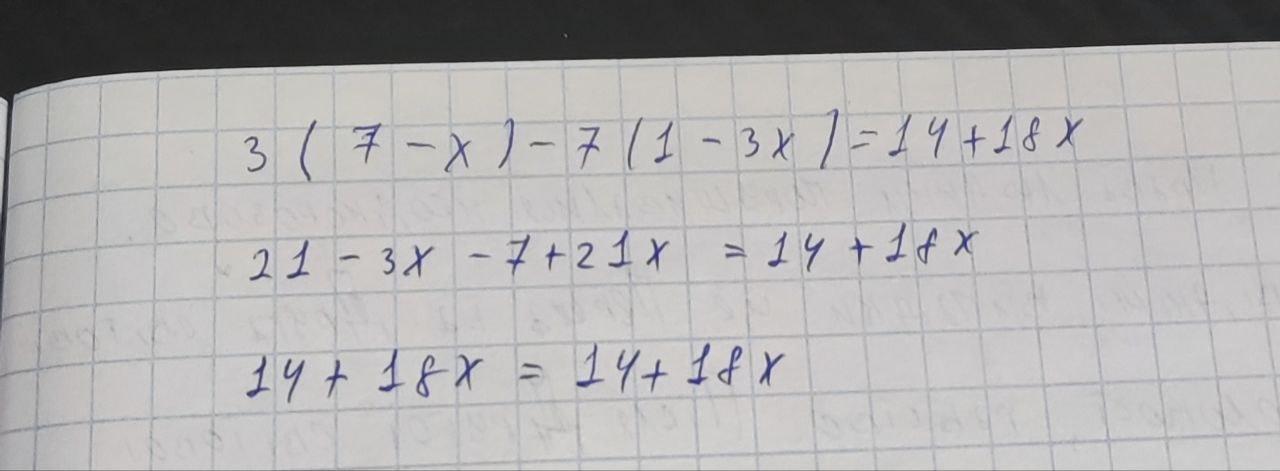 3(7-x)-7(1-3x)=14+18x
21-3x-7+21x=14+18x
14+18x=14+18x